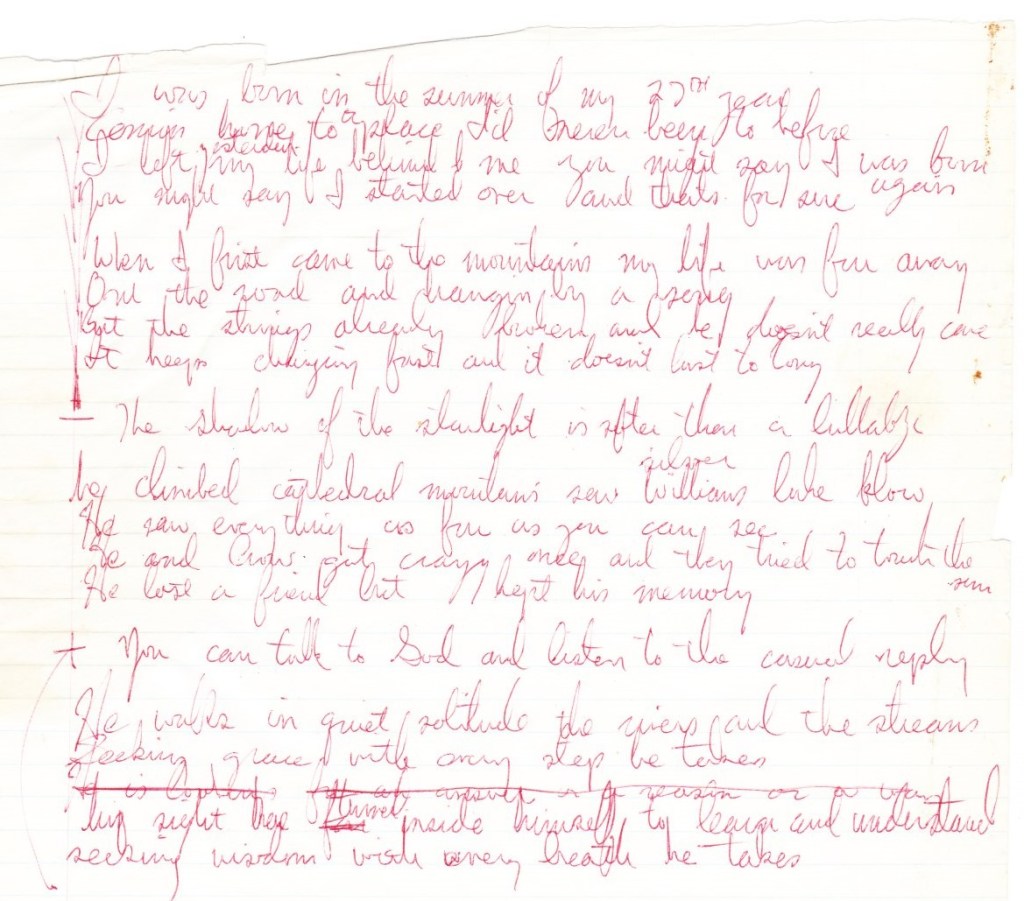 I was born in the summer of my 27TH year
Coming home to a place I'd never been to before
I left yesterday my life behind me you might say I was born again
You might say I started over and thats for sure
When I first came to the mountains my life was far away
On the road and hanging by a song
But the strings already broken and he doesn't really care
It keeps changing fast and it doesn't last to long
The shadow of the starlight is softer than a lullabye
he climbed cathedral mountains saw silver Williams lake blow
He saw everything as far as you can see
He and Crow got crazy once and they tried to touch the sun
He lost a friend but kept his memory
You can talk to God and listen to the casual reply
He walks in quiet solitude the rivers and the streams
Seeking grace with every step he takes
is for an answer or a reason or a
his sight has turned inside himself to learn and understand
seeking wisdom with every breath he takes